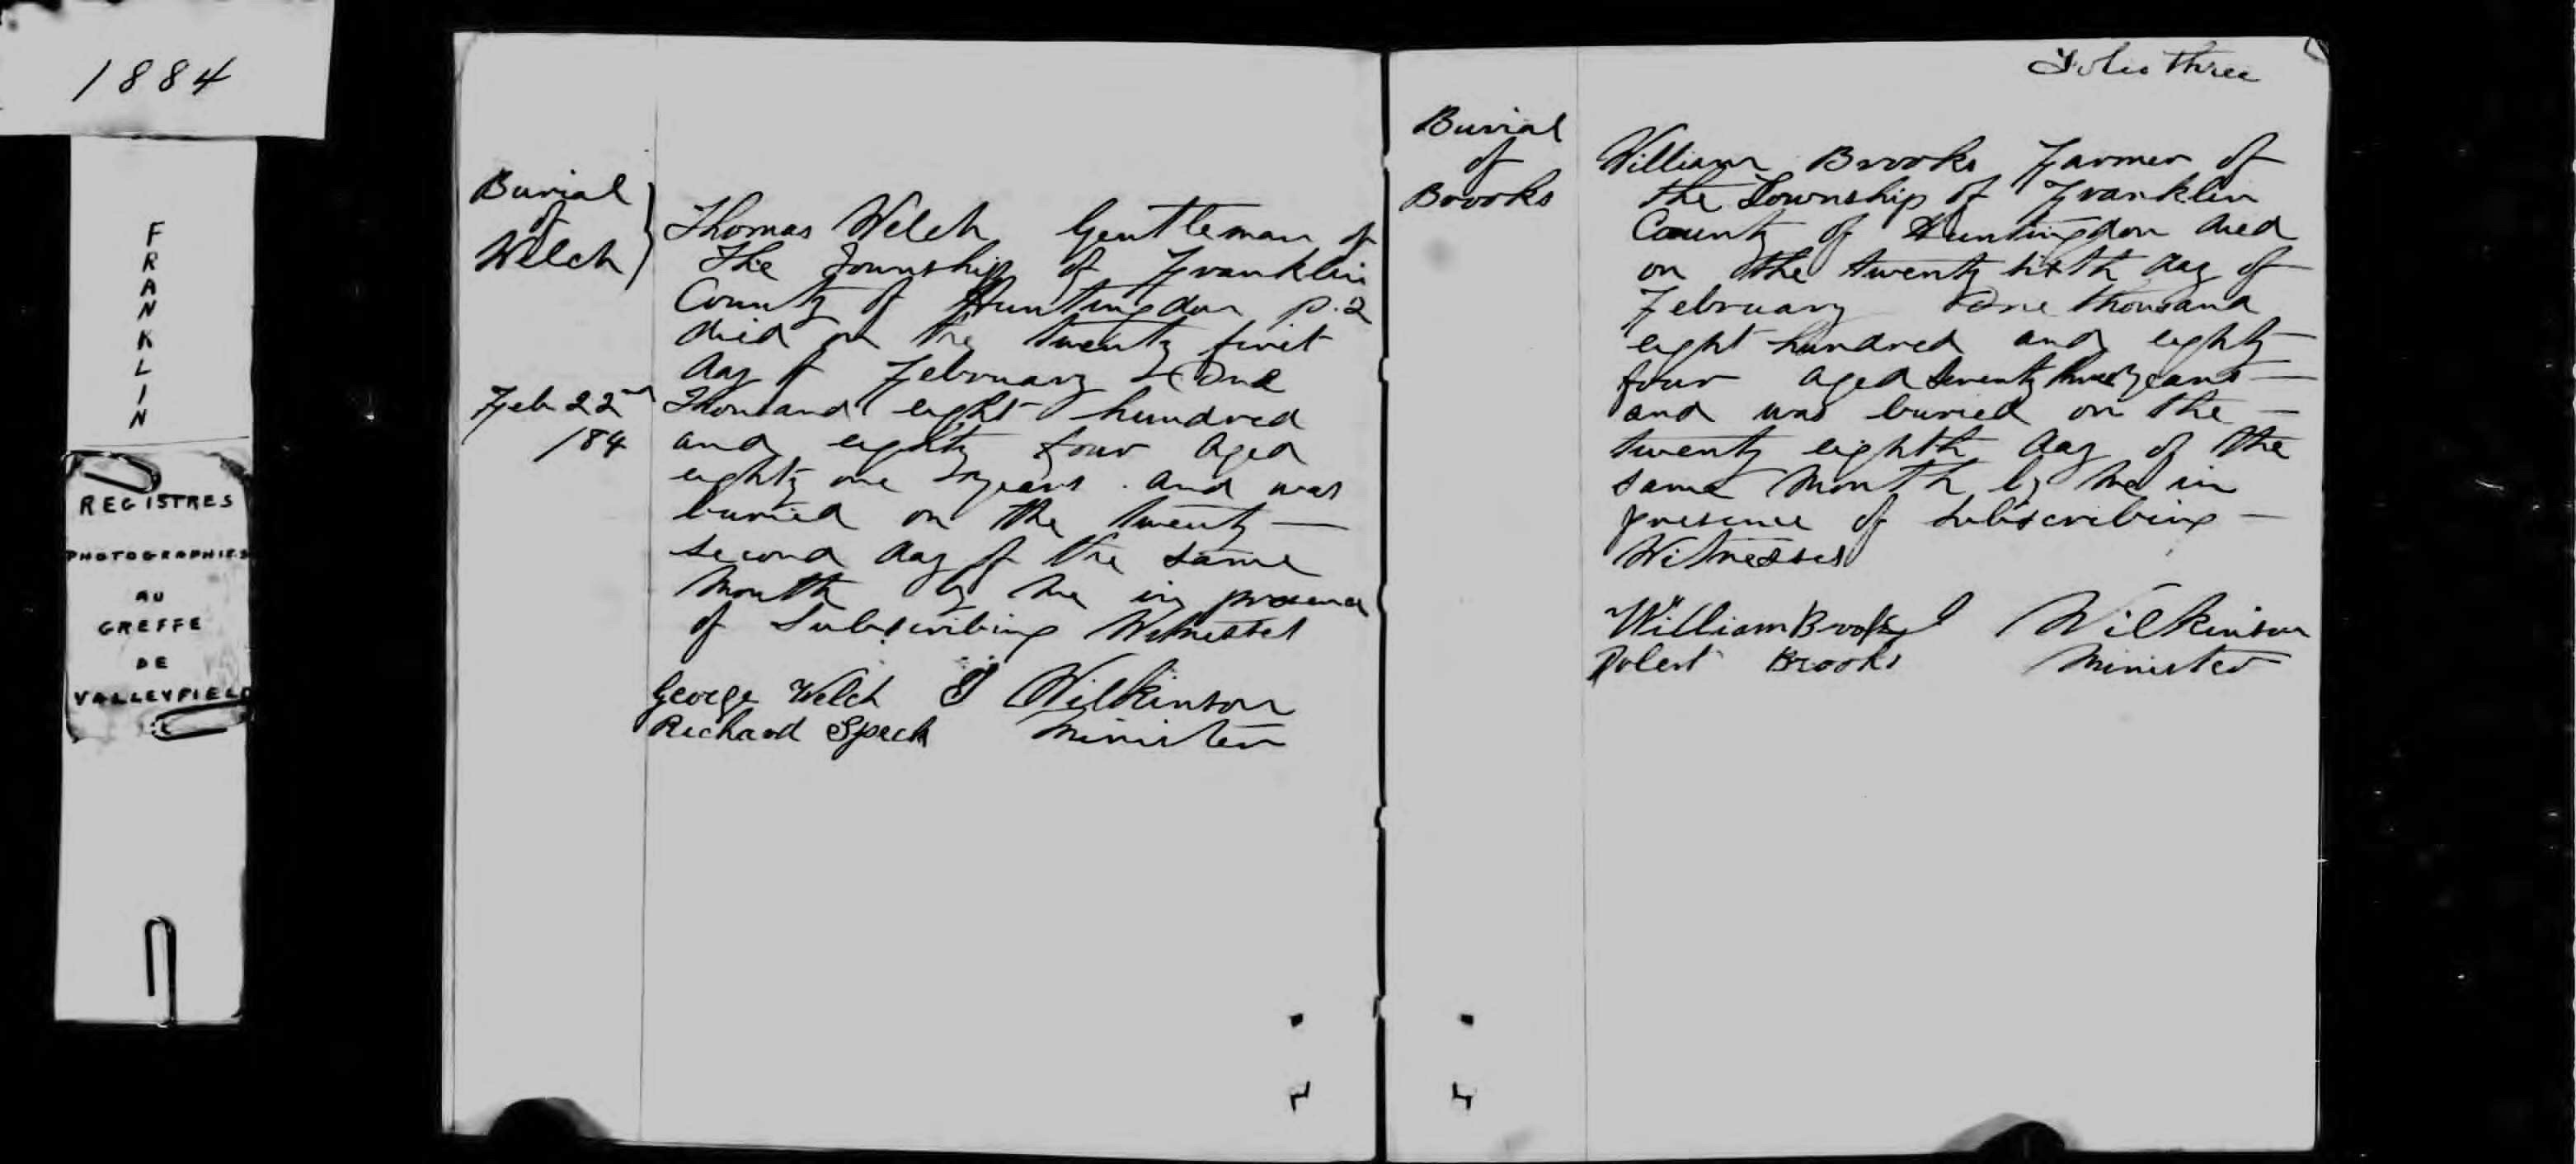 1884
FRANKLIN
REGISTRES
PHOTOGRAPHIES
AU
GREFFE
DE
VALLEYFIELD
Burial
of
Welch
Feb 22nd
184
Thomas Welch Gentleman of
The Township of Franklin
County of Huntingdon P.2
died on the twenty first
day of February One
Thousand eight hundred
and eighty four aged
eighty one years and was
buried on the twenty —
second day of the same
Month by me in presence
of Subscribing Witnesses
George Welch J Wilkinson
Richard Speck Minister
Folio three
Burial
of
Brooks
William Brooks Farmer of
the Township of Franklin
County of Huntingdon died
on the twenty sixth day of
February One thousand
eight hundred and eighty —
four aged seventy three years —
and was buried on the —
twenty eighth day of the
same Month by me in
presence of subscribing —
Witnesses
William Brooks J Wilkinson
Robert Brooks Minister